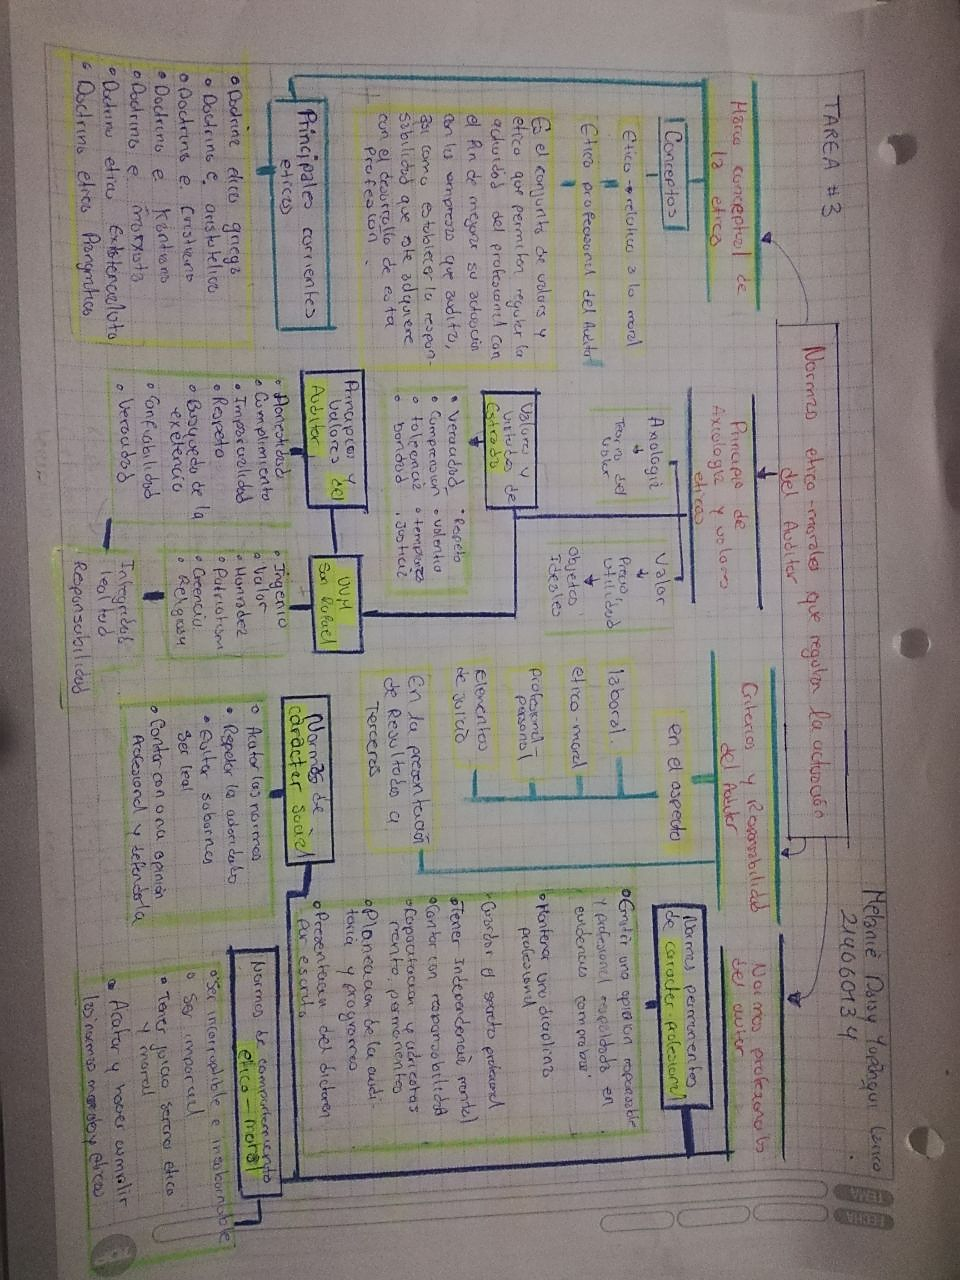 TAREA #3
Melanie Daisy Yapingui Larico
214060134
TEMA
FECHA
Normas etico-morales que regulan la actuación
del Auditor
Marco conceptual de
la etica
Conceptos
Etica → relativo a la moral
Etica profesional del Auditor
Es el conjunto de valores y
etica que permiten regular la
actividad del profesional con
el fin de mejorar su actuación
con la empresa que audita,
asi como establecer la respon-
sabilidad que este adquiere
con el desarrollo de esta
profesión.
Principales corrientes
eticas
• Doctrina etica griega
• Doctrina e. aristotelica
• Doctrina e. Cristiana
• Doctrina e Kantiana
• Doctrina e. marxista
• Doctrina etica Existencialista
• Doctrina etica Pragmatica
Principio de
Axiologia y valores
eticos
Axiologia
Teoria del
valor
Valor
Precio
utilidad
Objetos
Ideales
Valores y
virtudes de
Estrada
• Veracidad
• Comprension
• tolerancia
• bondad
• Respeto
• valentia
• templanza
• Justicia
Principios y
Valores del
Auditor
• Honestidad
• Cumplimiento
• Imparcialidad
• Respeto
• Busqueda de la
exelencia
• Confiabilidad
• Veracidad
UVM
San Rafael
• Ingenio
• Valor
• Honradez
• Patriotism
• Ciencia
• Religiosa
Integridad
lealtad
Responsabilidad
Criterios y Responsabilidad
del Auditor
en el aspecto
laboral.
etico-moral
profesional-
personal
Elementos
de juicio
En la presentación
de Resultados a
Terceros
Normas de
carácter social
• Acatar las normas
• Respetar la autoridad
• Evitar sobornos
ser leal
• Contar con una opinión
profesional y defenderla
Normas profesionales
del auditor
Normas permanentes
de caracter profesional
• Emitir una opinion responsable
y profesional respaldada en
evidencias comprobar
• Mantener una disciplina
profesional
• Guardar el secreto profesional
• Tener Independencia mental
• Contar con responsabilidad
• Capacitacion y adiestra
miento permanentes
• Planeación de la audi-
toria y programas
• Presentacion del dictamen
por escrito
Normas de comportamiento
etico-moral
• Ser incorruptible e insobornable
• Ser imparcial
• Tener juicio sereno etico
y moral
• Acatar y hacer cumplir
las normas morales y eticas